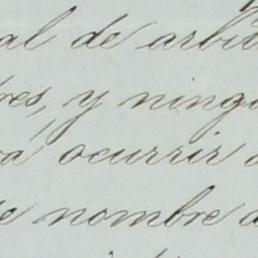 al de arbit
res, y ning
ocurrir
de nombre d